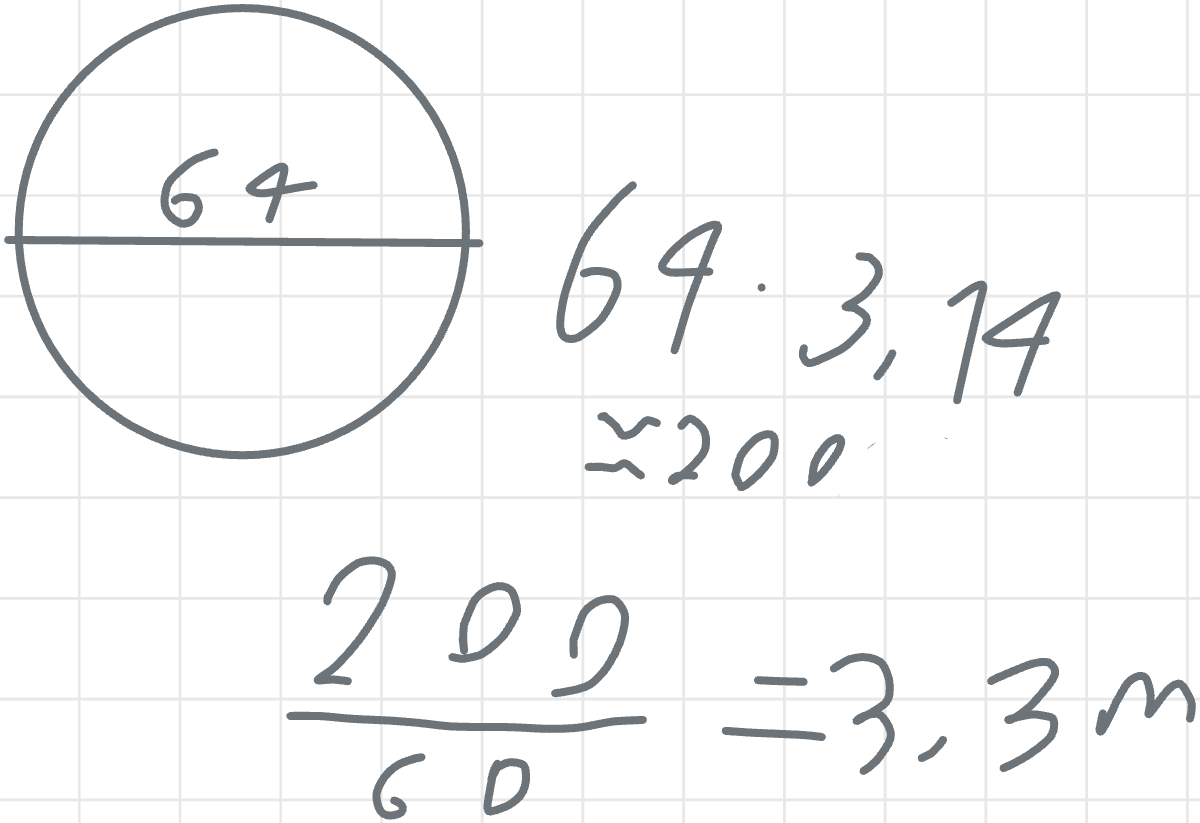 64
64 · 3,14
≈200
200
60
=3,3m